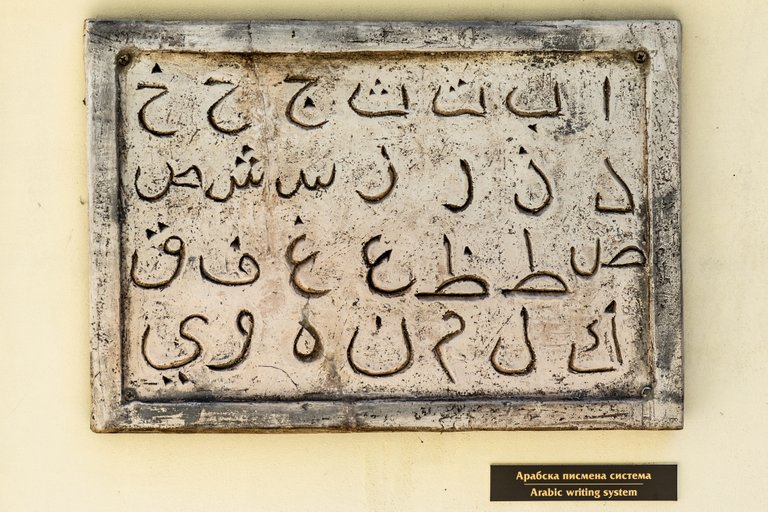 ا ب ت ث ج ح خ
د ذ ر ز س ش ص
ص ط ظ ع غ ف ق
ك ل م ن ه و ي
Арабска писмена система
Arabic writing system